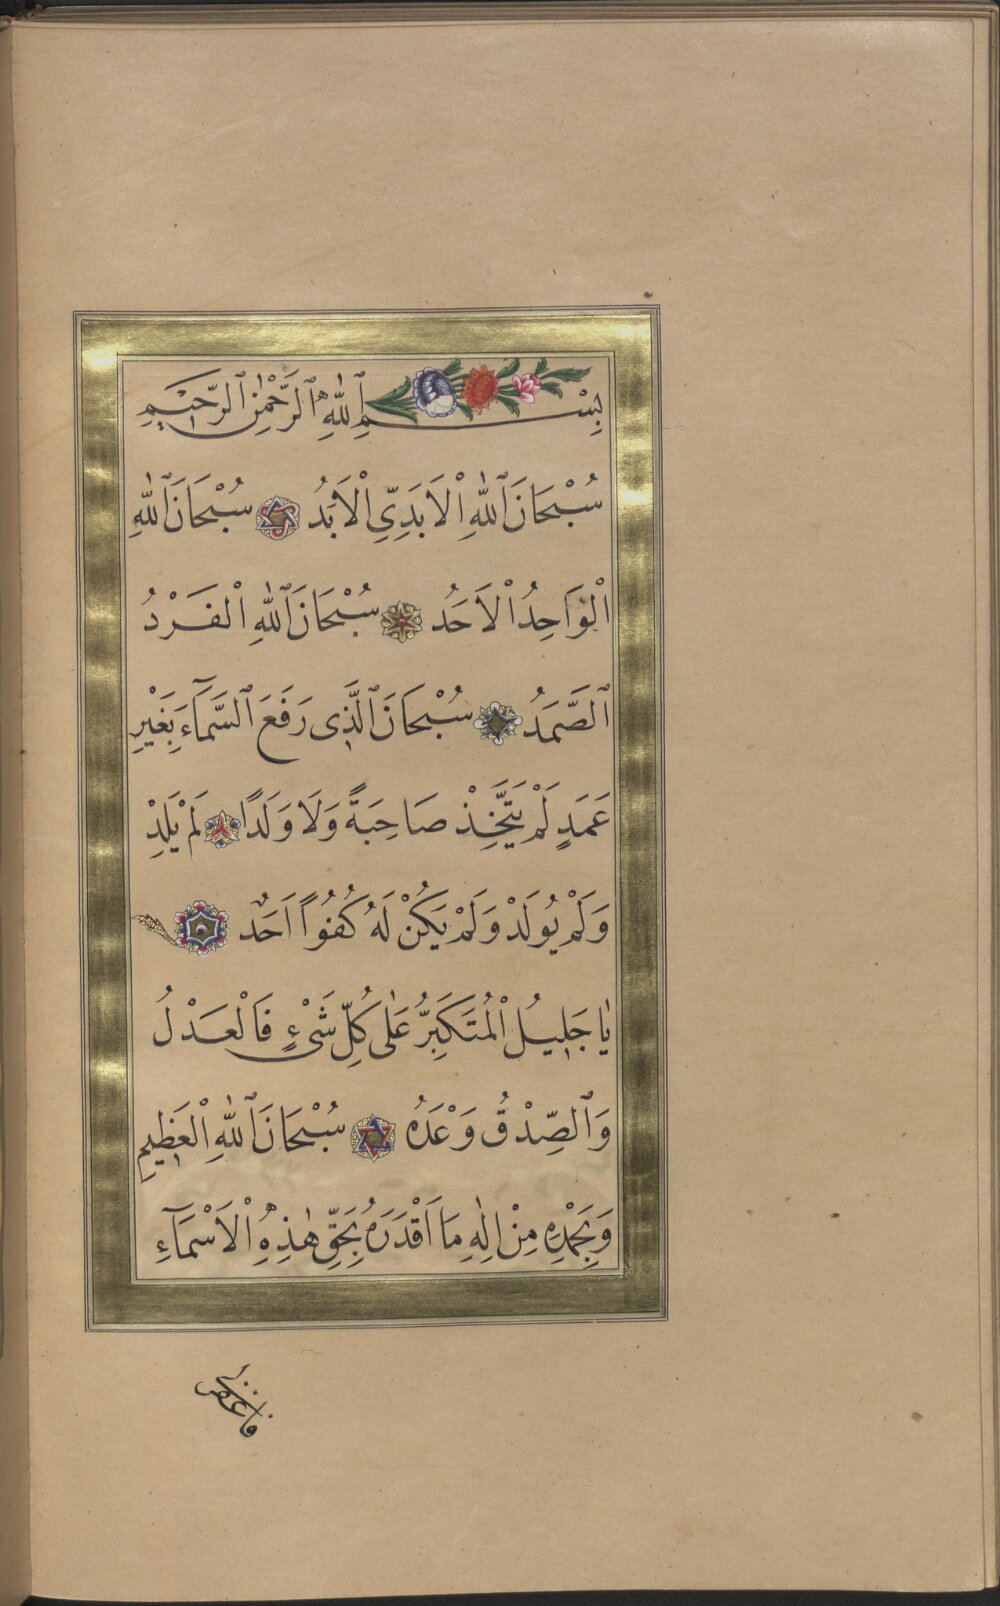 بِسْمِ ٱللّٰهِ ٱلرَّحْمٰنِ ٱلرَّحِيمِ
سُبْحَانَ ٱللّٰهِ اْلاَبَدِيِّ اْلاَبَدُ سُبْحَانَ ٱللّٰهِ
اْلوَاحِدُ اْلاَحَدُ سُبْحَانَ ٱللّٰهِ اْلفَرْدُ
ٱلصَّمَدُ سُبْحَانَ ٱلَّذِى رَفَعَ ٱلسَّمَآءَ بِغَيْرِ
عَمَدٍ لَمْ يَتَّخِذْ صَاحِبَةً وَلَا وَلَدًا لَمْ يَلِدْ
وَلَمْ يُولَدْ وَلَمْ يَكُنْ لَهُ كُفُوًا اَحَدٌ
يَا جَلِيلُ اْلمُتَكَبِّرُ عَلٰى كُلِّ شَىْءٍ فَاْلعَدْلُ
وَٱلصِّدْقُ وَعْدُهُ سُبْحَانَ ٱللّٰهِ اْلعَظِيمِ
وَبِحَمْدِهِ مِنْ اِلٰهٍ مَا اَقْدَرَهُ بِحَقِّ هٰذِهِ اْلاَسْمَآءِ
فاغفرلى